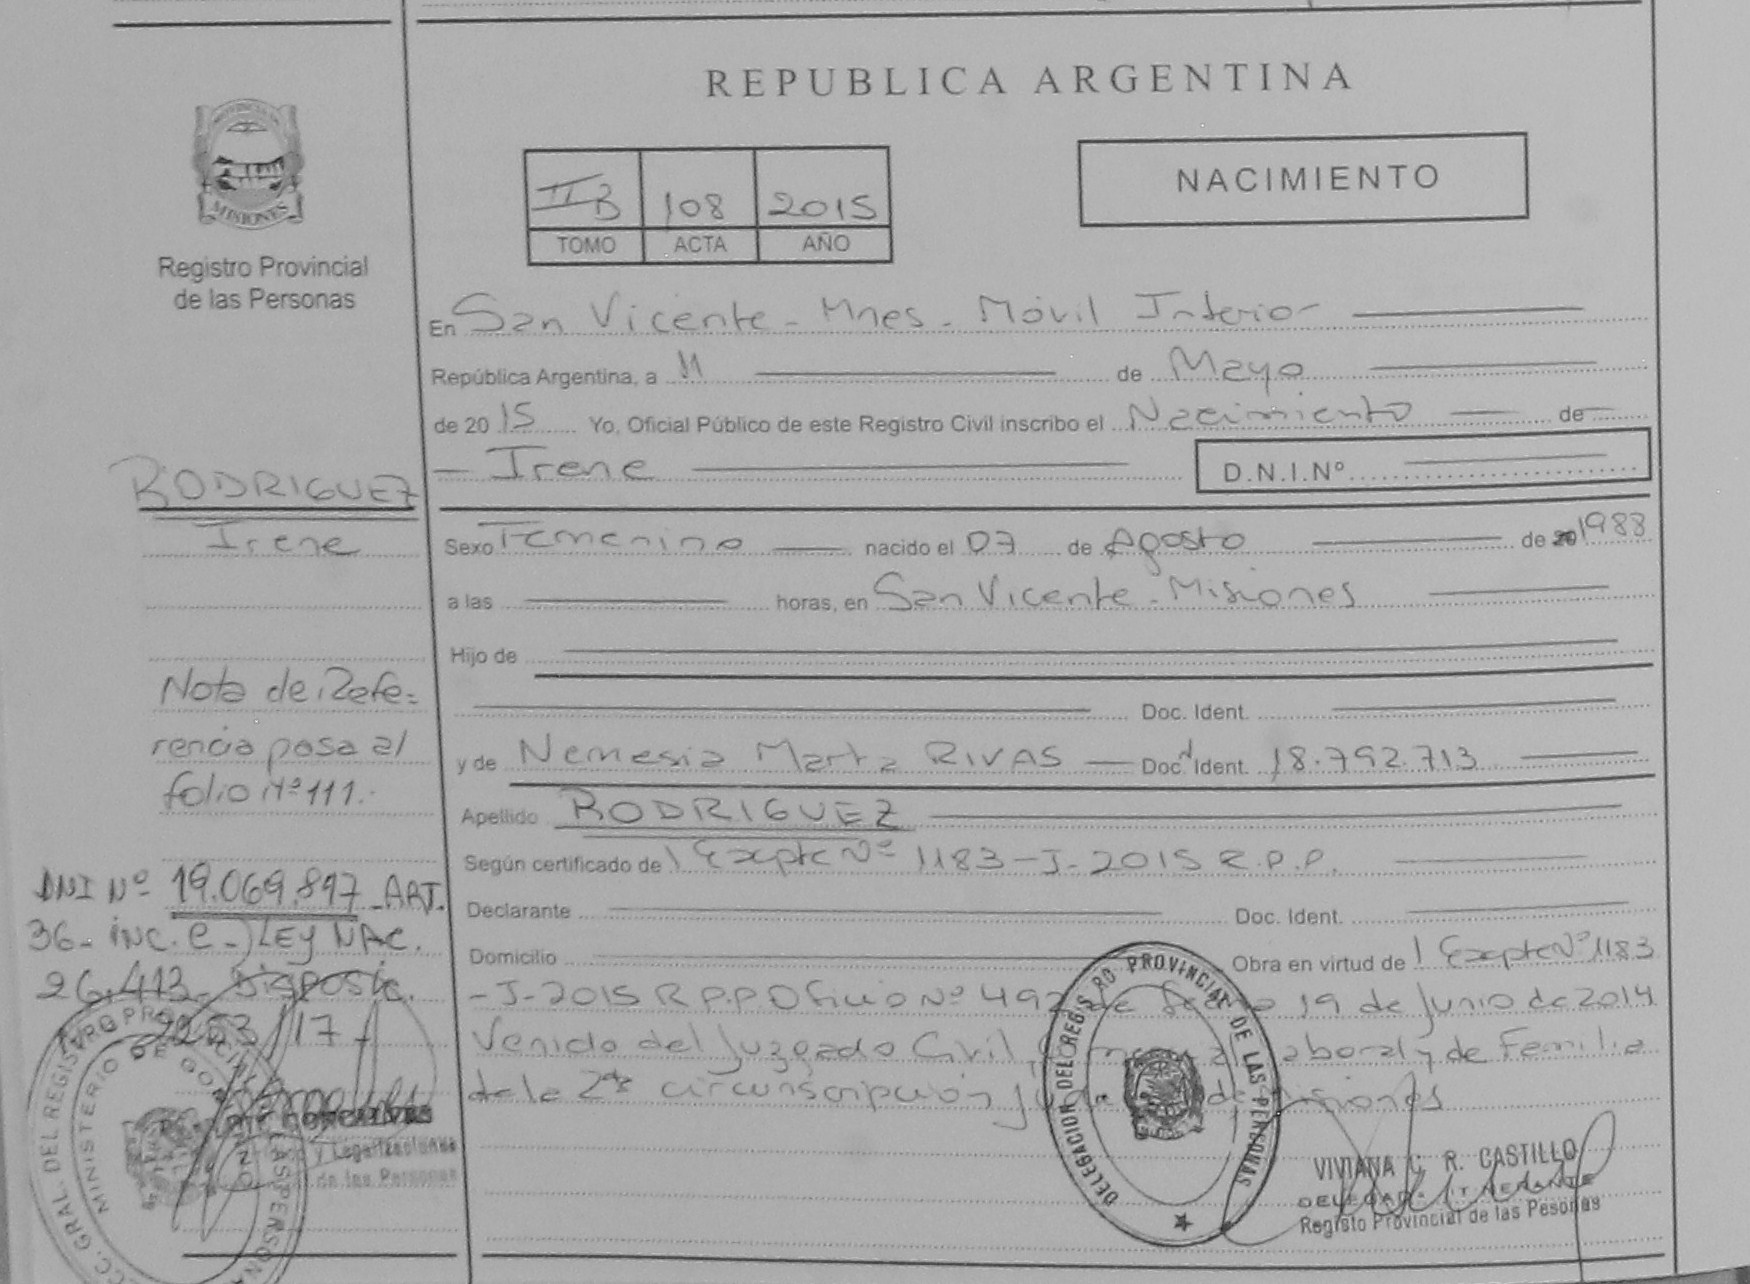 REPUBLICA ARGENTINA
PROVINCIA DE
MISIONES
Registro Provincial
de las Personas
II B 108 2015
TOMO ACTA AÑO
NACIMIENTO
En San Vicente - Mnes - Móvil Interior
República Argentina, a 11 de Mayo
de 2015 Yo, Oficial Público de este Registro Civil inscribo el Nacimiento de
Irene D.N.I.Nº
RODRIGUEZ
Irene
Sexo Femenino nacido el 07 de Agosto de 20 1988
a las horas, en San Vicente - Misiones
Hijo de
Doc. Ident.
y de Nemesia Marta RIVAS Doc. Ident. 18.792.713
Apellido RODRIGUEZ
Según certificado de Expte Nº 1183-J-2015 R.P.P.
Declarante Doc. Ident.
Domicilio Obra en virtud de Expte Nº 1183
-J-2015 R.P.P Oficio Nº 492 de 19 de Junio de 2014
Venido del Juzgado Civil, Laboral y de Familia
de la 2da circunscripción de Misiones
Nota de Refe=
rencia pasa al
folio Nº 111.-
DNI Nº 19.069.897 - ART.
36- inc. C-) LEY NAC.
26.413- Disposic.
2253/17-
y Legalizaciones
de las Personas
MINISTERIO DE GOBIERNO
GRAL. DEL REGISTRO PROVINCIAL DE LAS PERSONAS
DELEGACION DEL REGISTRO PROVINCIAL DE LAS PERSONAS
VIVIANA C. R. CASTILLO
DELEGADA ITINERANTE
Registo Provincial de las Pesonas